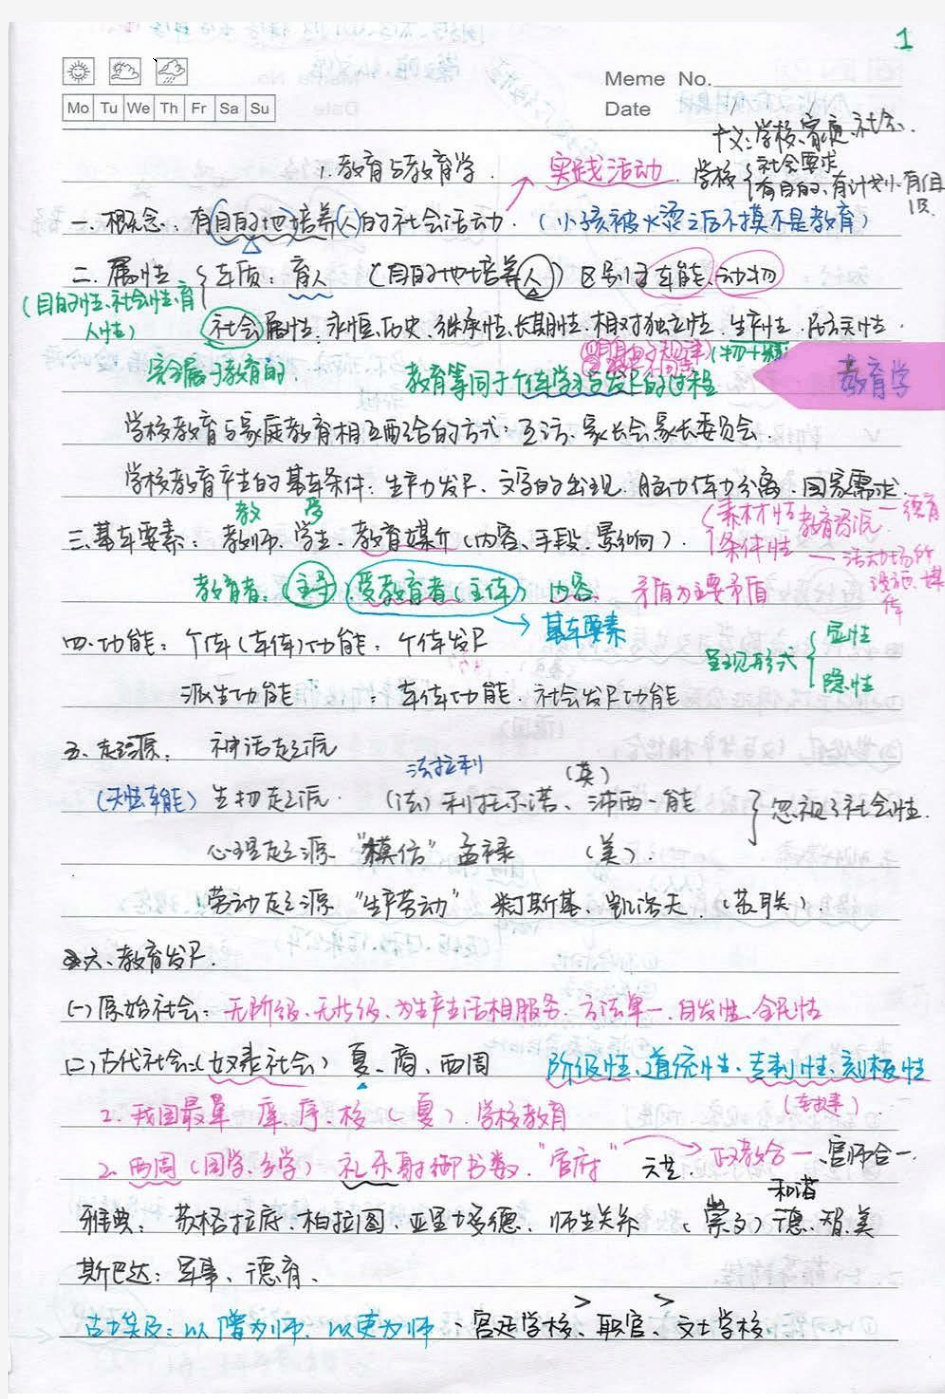 1
Meme No.
Mo Tu We Th Fr Sa Su
Date /
广义：学校、家庭、社会.
1. 教育与教育学. 实践活动. 学校 社会要求
有目的、有计划、有组
织
一. 概念：有目的地培养(人)的社会活动.（小孩被火烫之后不摸不是教育）
二. 属性 本质：育人 （目的地培养人）区别于本能、动物
(目的性、社会性、育
人性)
社会属性：永恒、历史、继承性、长期性、相对独立性、生产性、民族性.
完全属于教育的.
教育等同于个体学习与发展的过程
教育学
学校教育与家庭教育相互配合的方式：互访、家长会、家长委员会.
学校教育产生的基本条件：生产力发展、文字的出现、脑力体力分离、国家需求.
教 学
三.基本要素：教师、学生、教育媒介（内容、手段、影响）.
素材性 教育资源 — 德育
条件性 — 活动场所
设施、媒
体
教育者：(主导)、受教育者(主体) 内容. 矛盾为主要矛盾
→ 基本要素
四.功能：个体(本体)功能：个体发展
呈现形式 显性
隐性
派生功能：群体功能、社会发展功能
五、起源： 神话起源
(天性本能) 生物起源. (法)利托尔诺、(英)沛西·能
忽视了社会性.
心理起源 "模仿" 孟禄 (美).
劳动起源 "生产劳动" 米丁斯基、凯洛夫.（苏联）.
六、教育发展.
(一)原始社会：无阶级、无等级、为生产生活相服务、方法单一、自发性、全民性
(二)古代社会：(奴隶社会) 夏、商、西周 阶级性、道统性、专制性、刻板性
2. 我国最早 庠、序、校（夏）.学校教育
2. 西周（国学、乡学）礼乐射御书数."官府" → 政教合一、官师合一.
和谐
雅典： 苏格拉底、柏拉图、亚里士多德、师生关系 德、智、美
斯巴达：军事、德育、
古埃及：以僧为师、以吏为师、宫廷学校 > 职官 > 文士学校